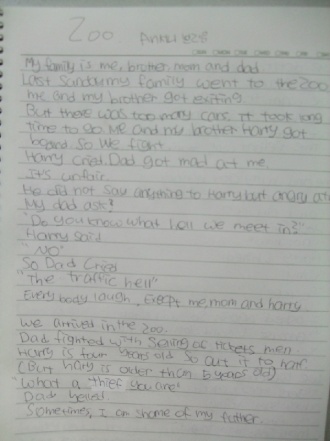 Zoo
My family is me, brother mom and dad
Last Sunday my family went to the zoo
me and my brother got exiting
But there was too many cars. it took long
time to go. me and my brother Harry got
board. so we fight.
Harry cried Dad got mad at me.
It's unfair.
He did not say anything to Harry but angry at
My dad ask?
"Do you know what hell we meet in?"
Harry said
"NO"
So Dad Cried
"The traffic hell"
Every body laugh. Except me mom and harry
we arrived in the zoo.
Dad fighted with selling of tickets men
Harry is four years old so cut it to half
(But hary is older than 5 years old)
"What a thief you are!
Dad helled.
Sometimes, I am shame of my futher.